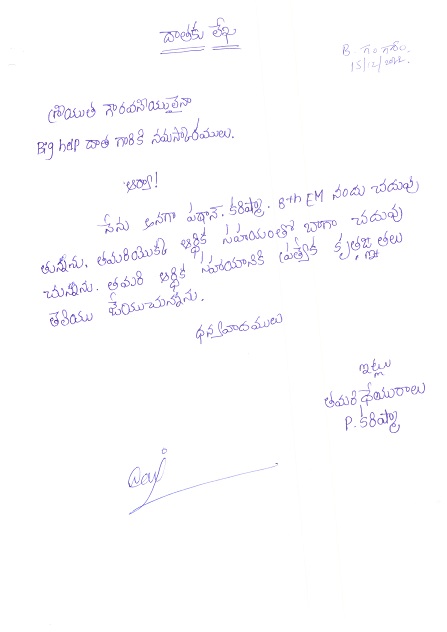 దాతకు లేఖ
B. గంగారం.
15/12/2022.
శ్రీయుత గౌరవనీయులైనా
Big help దాత గారికి నమస్కారములు.
ఆర్యా!
నేను అనగా పఠాన్. కరిష్మా. 8th EM నందు చదువు
తున్నాను. తమరియొక్క ఆర్థిక సహాయంతో బాగా చదువు
చున్నాను. తమరి ఆర్థిక సహాయానికి ప్రత్యేక కృతజ్ఞతలు
తెలియు చేయుచున్నాను.
ధన్యవాదములు
ఇట్లు
తమరి ధేయురాలు
P. కరిష్మా